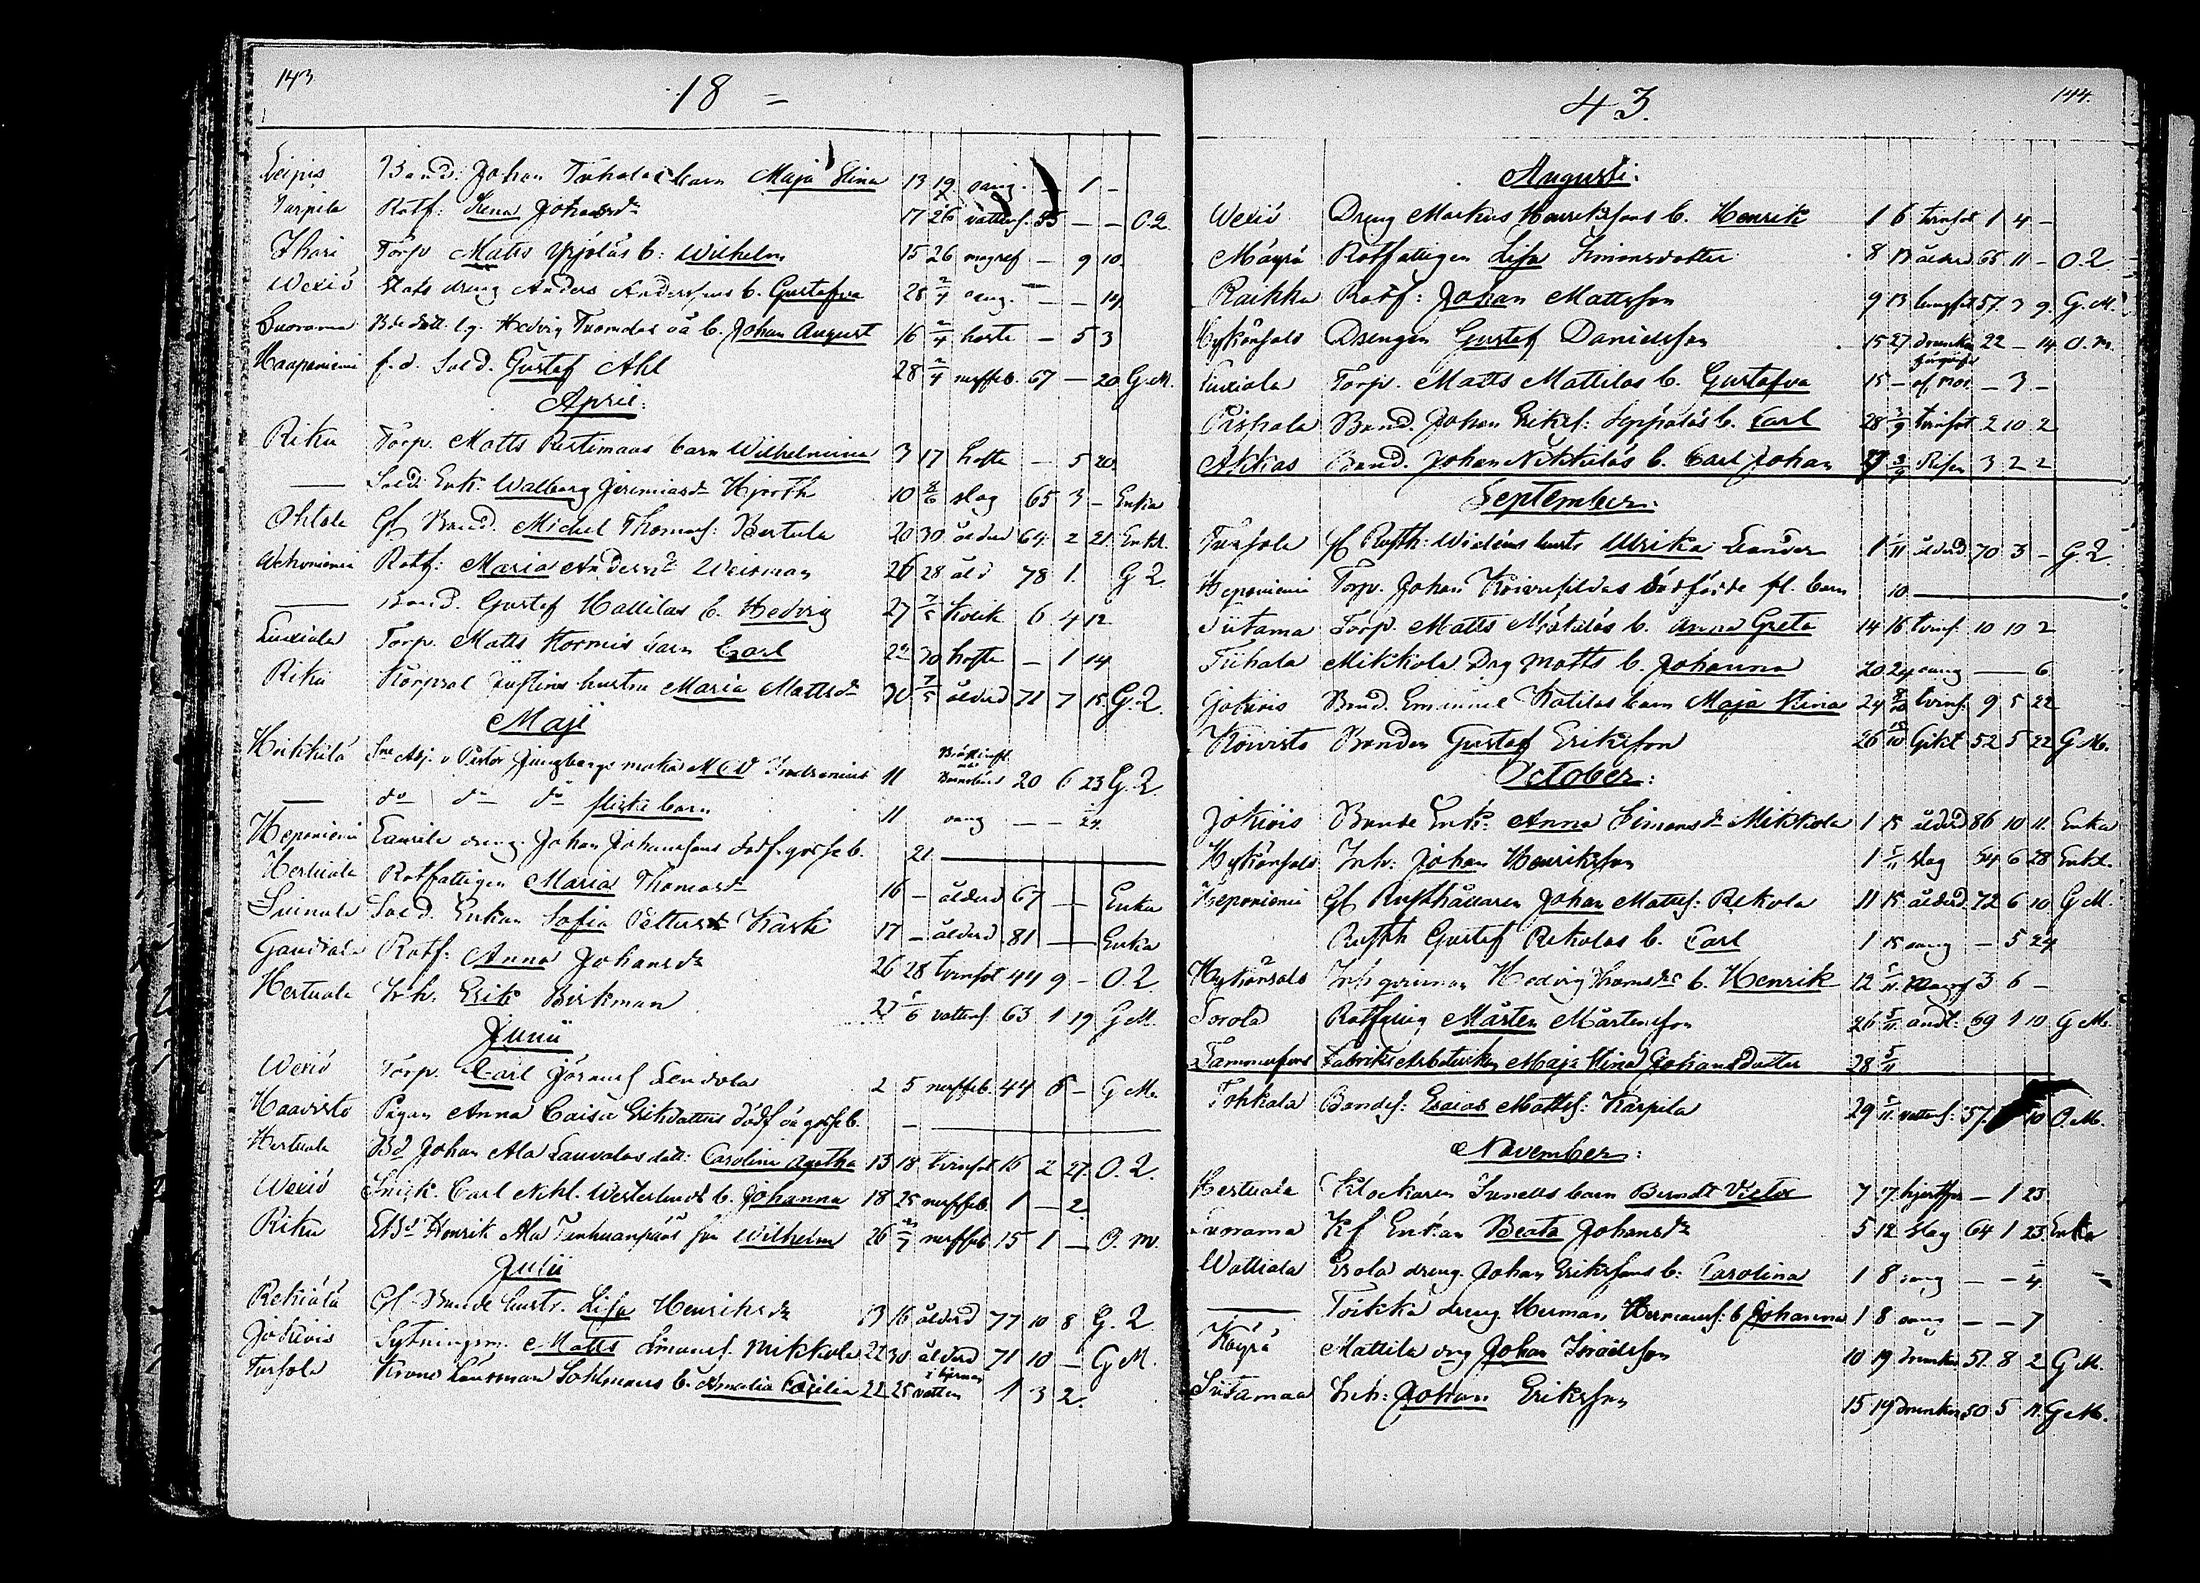 143
18 =
Leipis Bands: Johan Tuhalas barn Maja Stina 13 19 oang. — 1 —
Tarpila Rotf: Lena Johansdr 17 26 vattens. 55 — — O.Q.
Ihari Torp Matts Yrjöläs b: Wilhelm 15 26 magref — 9 10
Wexiö Stats dreng Anders Anderssons b. Gustafva 28 2/4 oang. — — 14
Suorama Bde dott. Hedvig Tuomolas oä b. Johan August 16 2/4 hosta — 5 3
Haaponiemi f.d. Sold. Gustaf Ahl 28 2/4 nerffeb. 67 — 20 G.M.
April:
Riku Torp. Matts Pertimaas barn Wilhelmina 3 17 hosta — 5 20
— Sold: Enk: Walborg Jeremiasdr Hjorth 10 8/6 slag 65 3 — Enka
Ohtola Gl Band. Michel Thomass: Bertula 20 30 ålderd 64 2 21 Enkl.
Wehoniemi Rotf: Maria Andersdr Weisman 26 28 åld 78 1. G Q
— Band. Gustaf Mattilas b. Hedvig 27 7/5 kolik 6 4 12
Liuxiala Torp. Matts Hormis barn Carl 29 30 hosta — 1 14
Riku Korpral hustru Maria Mattsdr 30 7/5 ålderd 71 7 15 G.Q.
Maji
Heikkilä Adj. o Pastor Ljungbergs maka M C W 11 Barnsbörd 20 6 23 G.Q.
— do do do flicka barn 11 oang — — 24
Heponiemi Laurila dreng Johan Johanssons dödf. gosse b. 21 —
Hertuala Rotfattigen Maria Thomasdr 16 — ålderd 67 — Enka
Suinula Sold. Enkan Sofia Pettersdr Kask 17 — ålderd 81 — Enka
Gaudiala Rotf: Anna Johansdr 26 28 tvinsot 44 9 — O.Q
Hertuala Inh. Erik Birkman 27 5/6 vattens. 63 1 19 G M.
Junii
Wexiö Torp. Carl Göranss Lendola 2 5 nerffeb. 44 6 — G M.
Haavisto Pigan Anna Caisa Eriksdotters dödf oä gosse b. —
Hertuala Bd Johan Ala Lauvalas dott: Carolina Agatha 13 18 tvinsot 16 2 27. O.Q.
Wexiö Snick. Carl Mchl. Westerlunds b. Johanna 18 25 nerffeb 1 — 2
Riku Bd Henrik Ala Tenhuanpääs son Wilhelm 26 2/7 nerffeb 15 1 — O.M.
Julii
Rekiälä Gl Bonde hustr. Lisa Henriksdr 13 16 ålderd 77 10 8 G.Q
Jokiois Sytningsm. Matts Simonss. Mikkola 22 30 ålderd 71 10 — G M.
Tursola Krono Länsman Sohlmans b. Amalia Cecilia 22 25 vatten i hjernan 1 3 2.
43.
144.
Augusti:
Wexiö Dreng Markus Henrikssons b. Henrik 1 6 tvinsot 1 4 —
Mäyrä Rotfattigen Lisa Simonsdotter 8 13 ålderd 65 11 — O.Q
Raikku Rotf: Johan Mattsson 9 13 lungsot 57 3 9. G.M.
Hyhönsalo Drengen Gustaf Danielsson 15 27 drunkn 22 — 14 O.M.
Liuxiala Torp. Matts Mattilas b. Gustafva 15 — af mor — 3 —
Pispala Band. Johan Erikss: Seppäläs b. Carl 28 3/9 tvinsot 2 10 2
Akkas Band. Johan Nikkiläs b. Carl Johan 29 3/9 Risen 3 2 2
September:
Tursola Gl Rusth: Widens hustr Ulrika Lander 1 11 ålderd. 70 3 — G.Q.
Heponiemi Torp. Johan dödfödde fl. barn 10. —
Siitama Torp. Matts Mäkiläs b. Anna Greta 14 16 tvins. 10 10 2
Tiihala Mikkola Dreng Matts b. Johanna 20 24 oang — — 6
Jokiois Bnd. Emanuel Katilas barn Maja Stina 24 8/10 tvins. 9 5 22
Koivisto Bonden Gustaf Eriksson 26 15/10 Gikt 52 5 22 G M.
October:
Jokiois Bonde Enk: Anna Simonsdr Mikkola 1 15 ålderd 86 10 11. Enka
Hyhönsalo Inh: Johan Henriksson 1 5/11 slag 54 6 28 Enkl.
Heponiemi Gl Rusthållaren Johan Mattss: Rekola 11 15 ålderd. 72 6 10 G M.
Rusth Gustaf Rekolas b. Carl 1 15 oang — 5 24
Hyhönsalo Inhqvinnan Hedvig Thomsdr b. Henrik 12 5/11 3 6 —
Sorola Rotfattig Mårten Mårtensson 26 5/11 andt: 69 1 10 G M.
Tammerfors Fabriks Arbeterskan Maja Stina Johansdotter 28 5/11
Tohkala Bondes: Esaias Mattss: Karpila 29 5/11 vattens: 57. 10 O.M.
November:
Hertuala Klockaren barn Berndt Victor 7 17 — 1 23
Suorama Kf Enkan Beata Johansdr 5 12 slag 64 1 23 Enka
Wattiala Erola dreng Johan Erikssons b: Carolina 1 8 oang — — 4
— Toikka dreng Herman Hermanss: b Johanna 1 8 oang — — 7
Köyrä Mattila drg Johan Israelsson 10 19 drunkn 51. 8 2 G M.
Siitamaa Inh: Johan Eriksson 15 19 drunkn 50 5 11. G M.